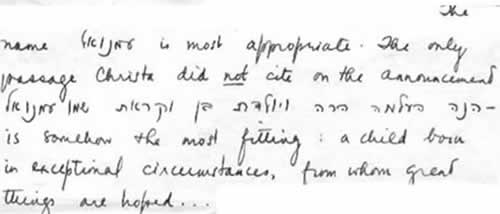 The
name עמנואל is most appropriate. The only
passage Christa did not cite on the announcement
– הנה העלמה הרה ויולדת בן וקראת שמו עמנואל
is somehow the most fitting: a child born
in exceptional circumstances, from whom great
things are hoped...